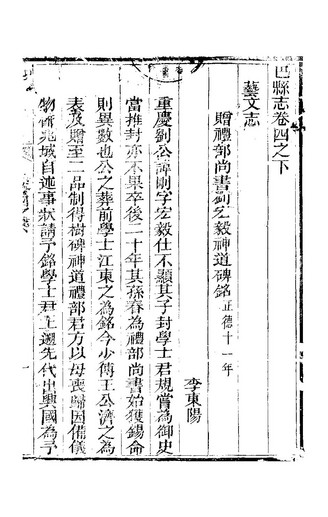 巴縣志卷四之下
藝文志
贈禮部尚書劉宏毅神道碑銘 正德十一年
李東陽
重慶劉公諱剛字宏毅仕不顯其子封學士君規嘗為御史
當推封亦不果卒後二十年其孫春為禮部尚書始獲錫命
則異數也公之葬前學士江東之為銘今少傅王公濟之為
表及贈至二品制得樹碑神道禮部君方以母喪歸因備儀
物脩兆域自述事狀請予銘學士君上遡先代出興國為予